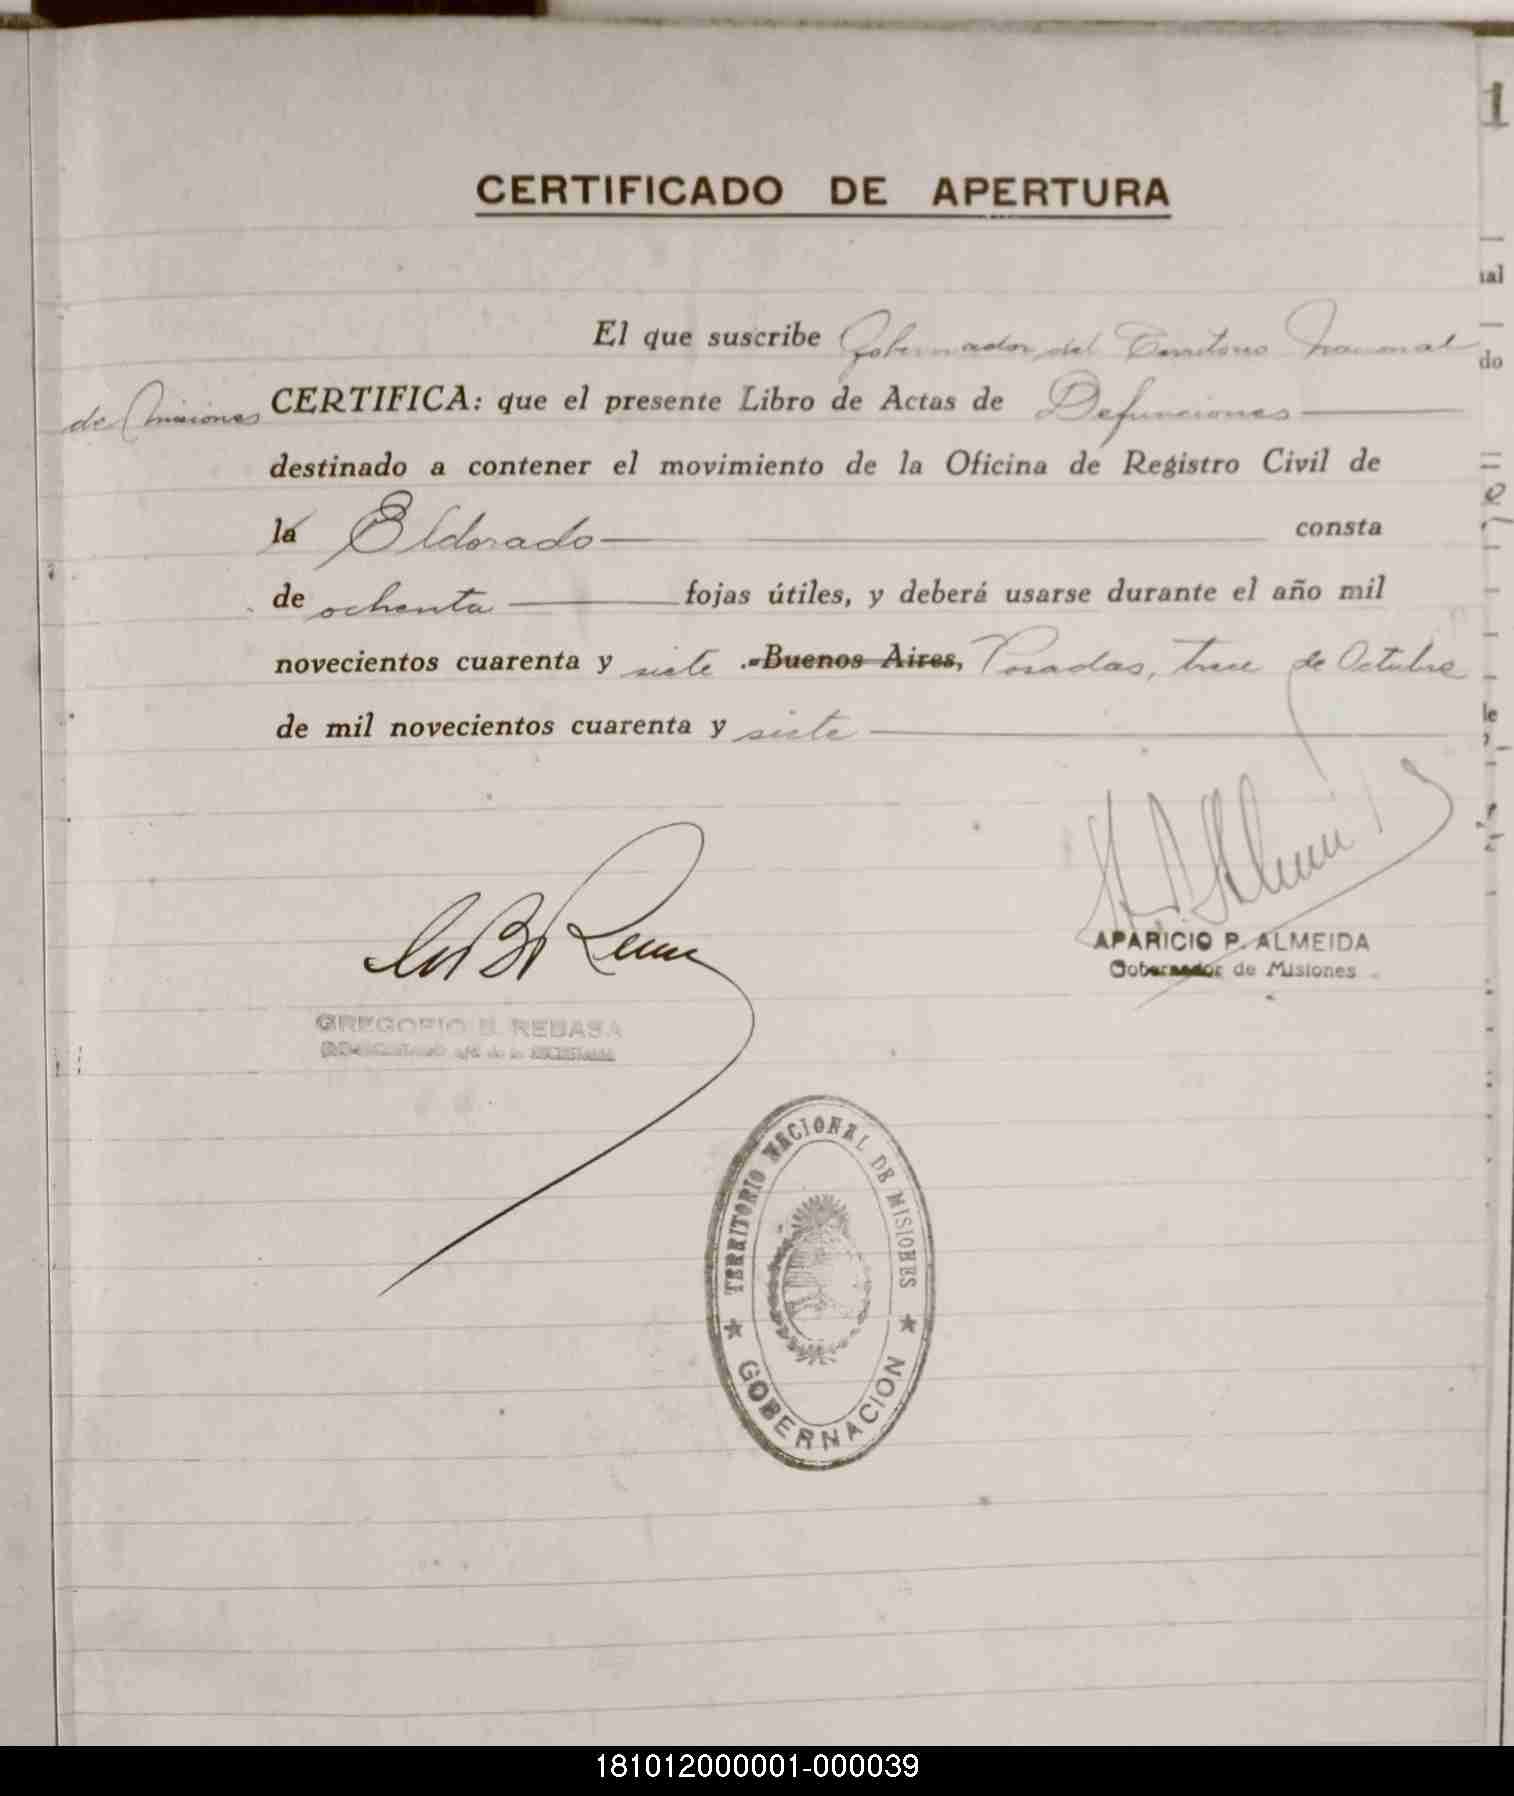 1
CERTIFICADO DE APERTURA
El que suscribe Gobernador del Territorio Nacional
de Misiones CERTIFICA: que el presente Libro de Actas de Defunciones
destinado a contener el movimiento de la Oficina de Registro Civil de
la Eldorado consta
de ochenta fojas útiles, y deberá usarse durante el año mil
novecientos cuarenta y siete .-Buenos Aires, Posadas, trece de Octubre
de mil novecientos cuarenta y siete
APARICIO P. ALMEIDA
Gobernador de Misiones
GREGORIO B. REBASA
TERRITORIO NACIONAL DE MISIONES
GOBERNACION
181012000001-000039